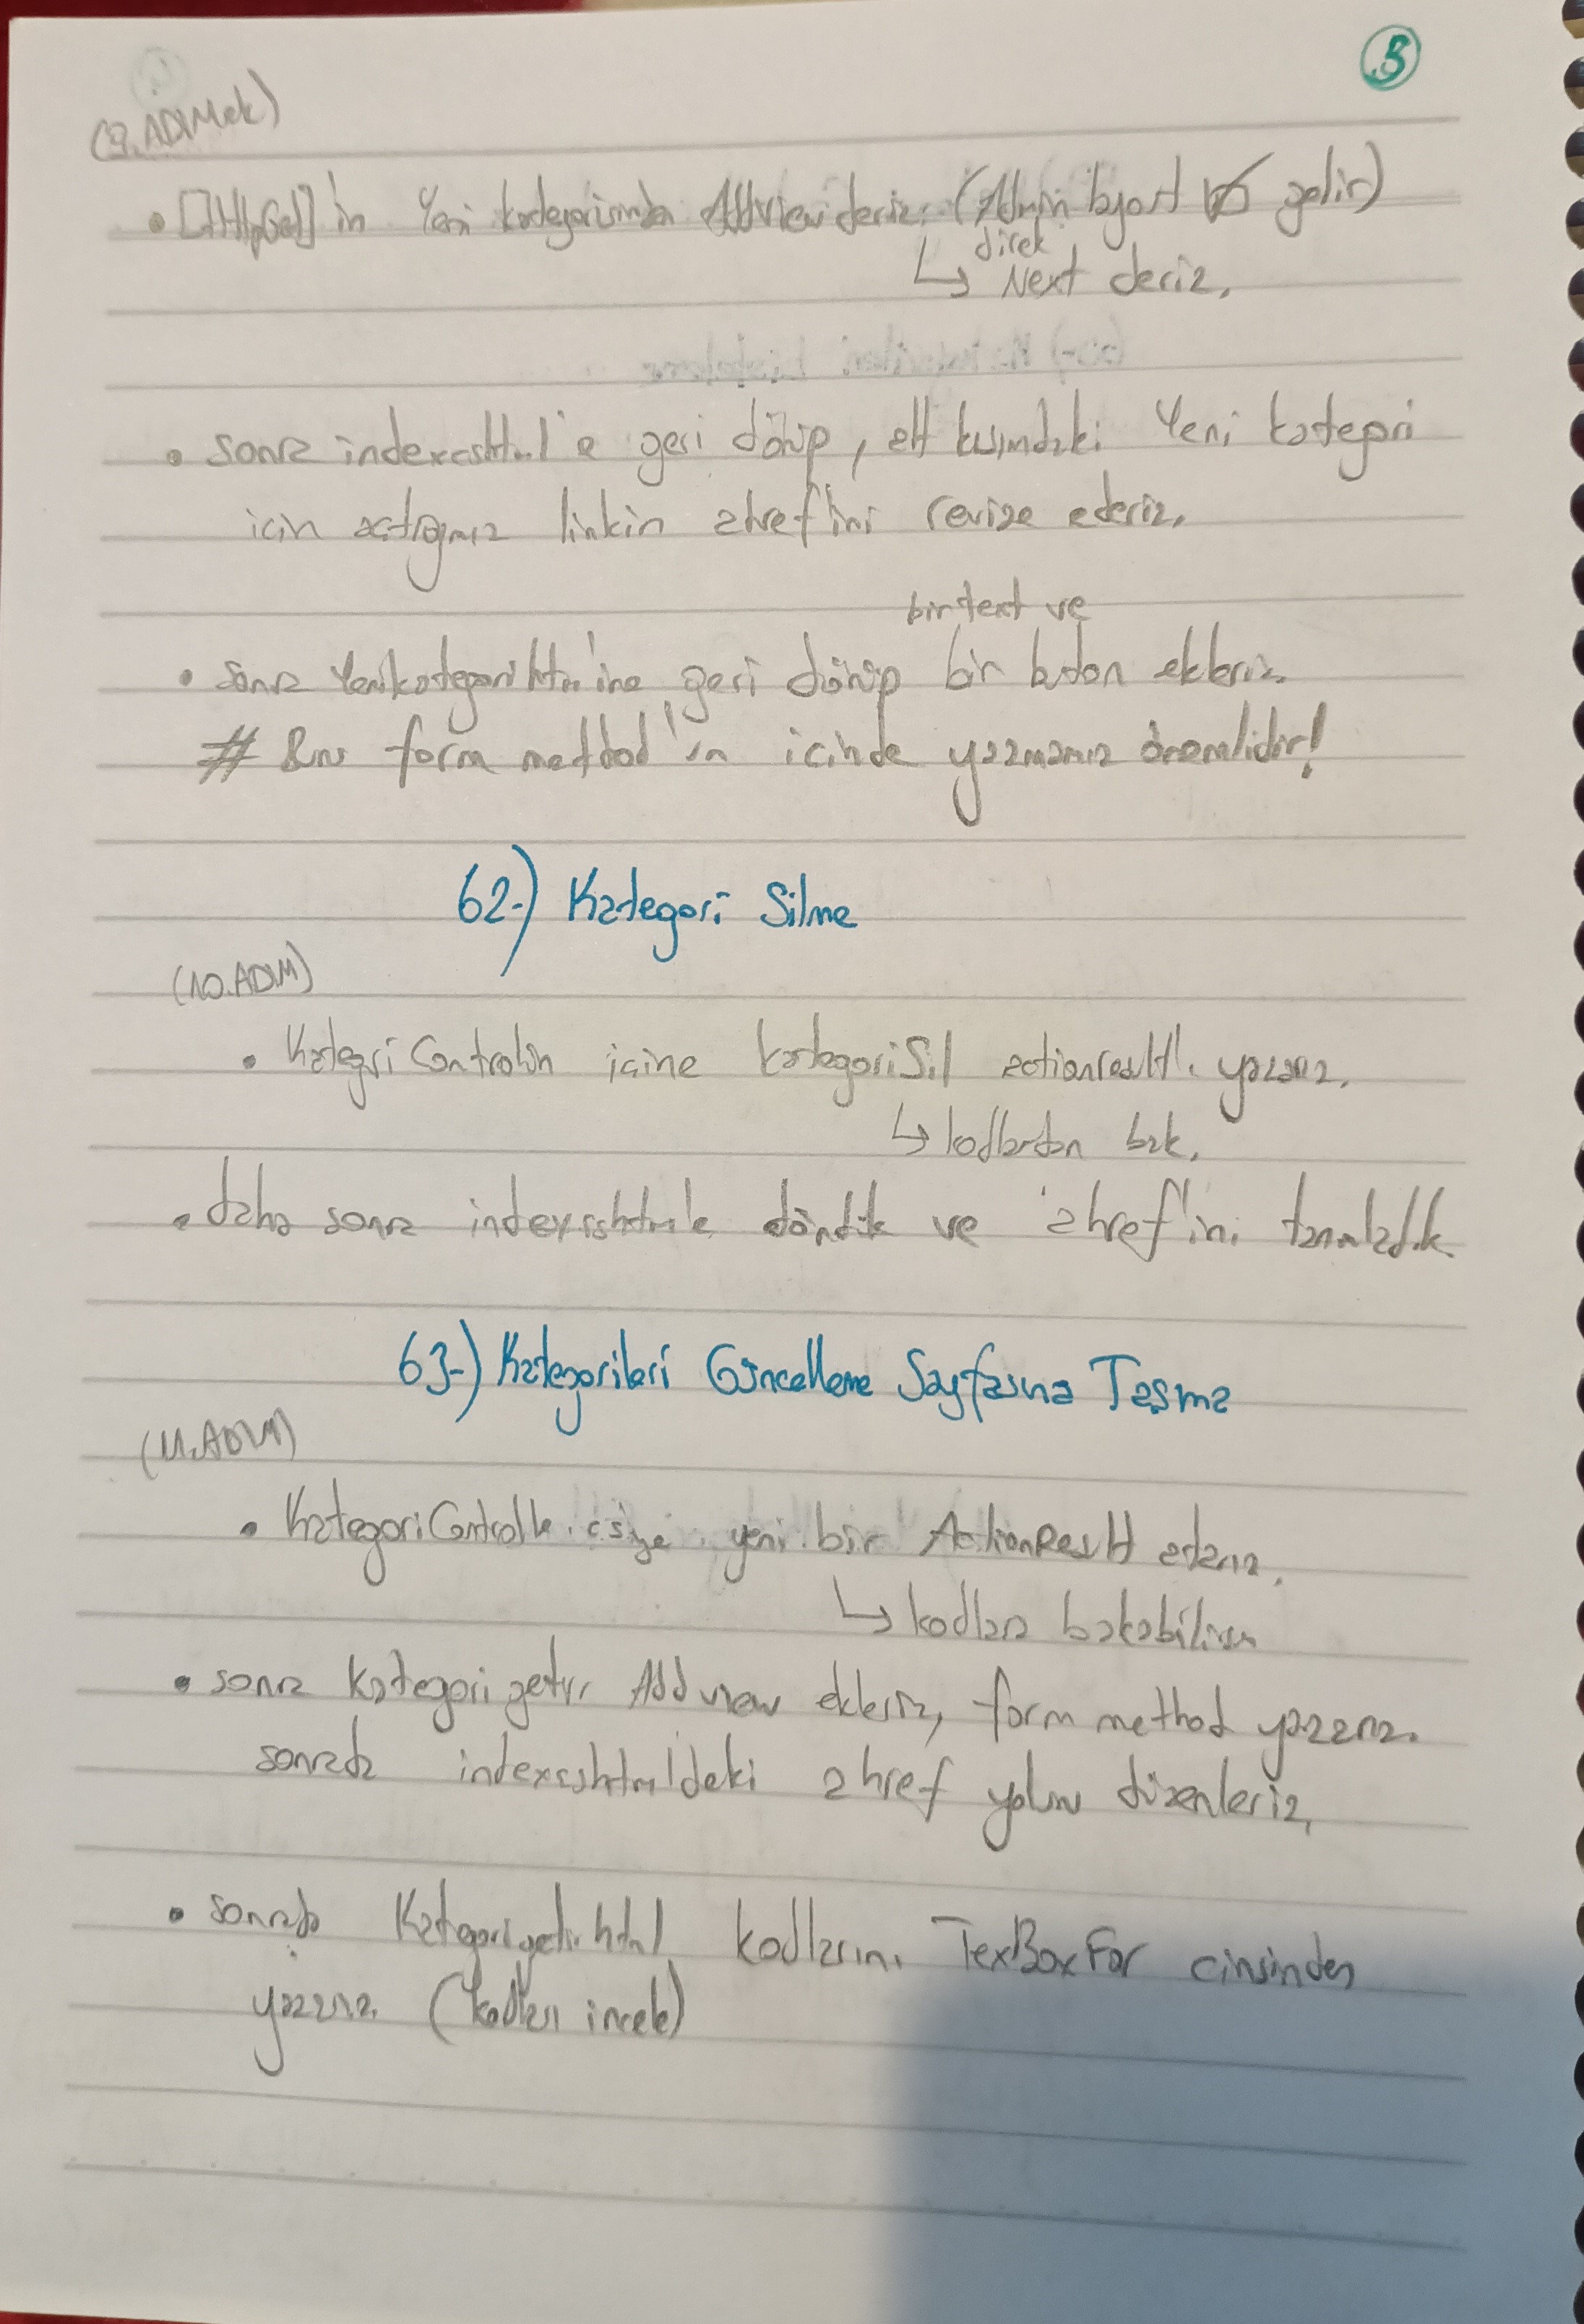 5
(9.ADIM ek)
• [HttpGet]'in Yeni kategorisinden AddView deriz. (Admin layout gelir)
direk
↳ Next deriz.
• sonra index.cshtml'e geri dönüp, alt kısımdaki Yeni kategori
için açtığımız linkin ahref'ini revize ederiz.
bir text ve
• sonra Yenikategori html'ine geri dönüp bir buton ekleriz.
# Bunu form method'un içinde yazmamız önemlidir!
62-) Kategori Silme
(10.ADIM)
• Kategori Controlün içine kategoriSil actionresult'ı yazarız.
↳ kodlardan bak.
• daha sonra index.cshtml'e döndük ve 'ahref'ini tanımladık.
63-) Kategorileri Güncelleme Sayfasına Taşıma
(11.ADIM)
• KategoriControlle.cs'ye yeni bir ActionResult atarız.
↳ kodlara bakabilirsin
• sonra Kategori getir Add view ekleriz, form method yazarız.
sonrada index.cshtml'deki ahref yolunu düzenleriz.
• sonrada Kategorigetir.html kodlarını TexBoxFor cinsinden
yazarız. (kodları incele)